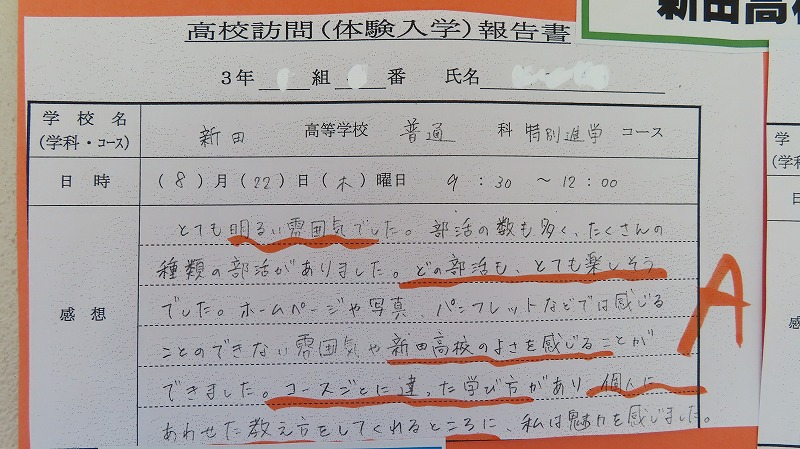 新田高校
高校訪問(体験入学)報告書
3年 組 番 氏名
学校名 新田 高等学校 普通 科 特別進学 コース
(学科・コース)
日時 (8)月(22)日(木)曜日 9:30 ~ 12:00
とても明るい雰囲気でした。部活の数も多く、たくさんの
種類の部活がありました。どの部活も、とても楽しそう
感想 でした。ホームページや写真、パンフレットなどでは感じる
ことのできない雰囲気や新田高校のよさを感じることが
できました。コースごとに違った学び方があり、個人に
あわせた教え方をしてくれるところに、私は魅力を感じました。
A
学
(学科
日
感